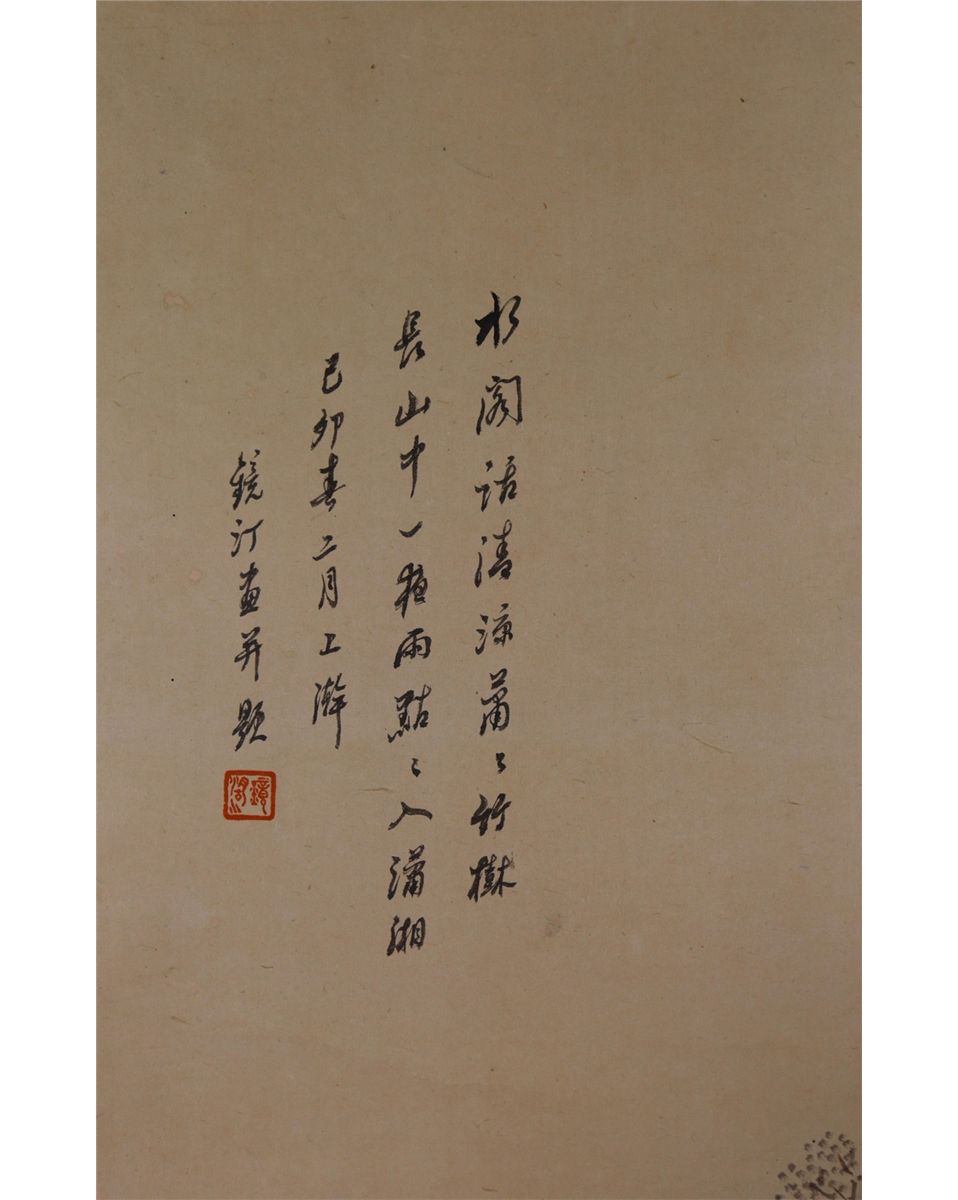 水閣話清涼蕭〻竹樹
長山中一夜雨點〻入瀟湘
己卯春二月上澣
鏡汀畫并題
鏡湖